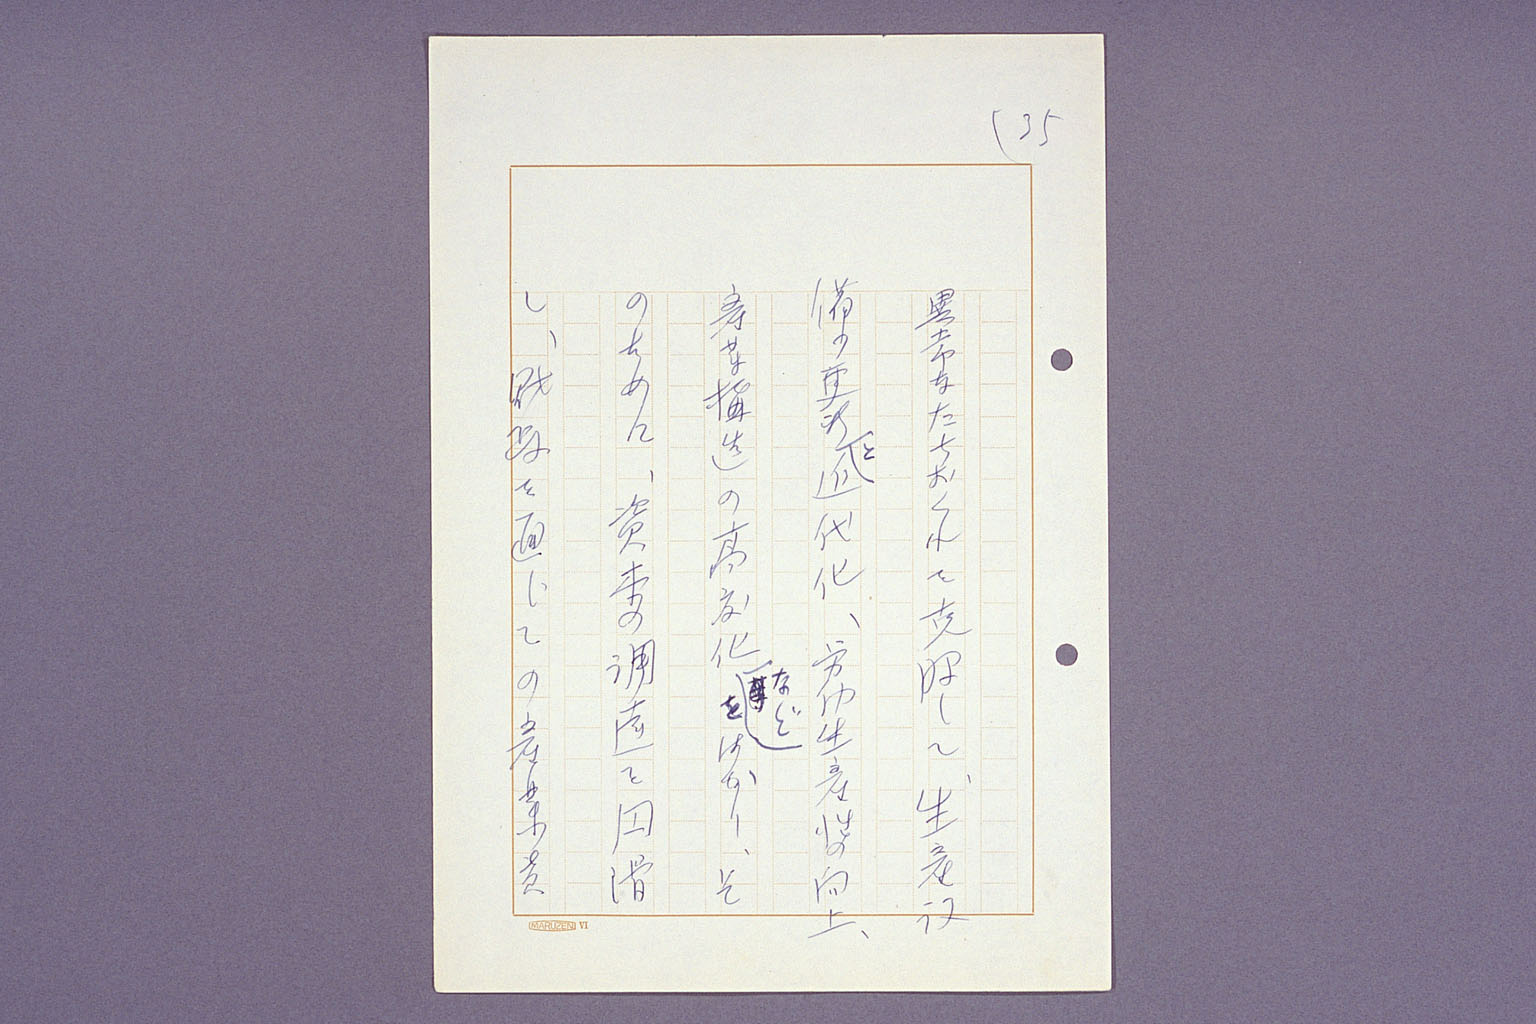 35
異常なたちおくれを克服して、生産設
備の更新と近代化、労仂生産性の向上、
産業構造の高度化などをはかり、そ
のために、資金の調達を円滑
し、財政を通じての産業資
MARUZEN VI